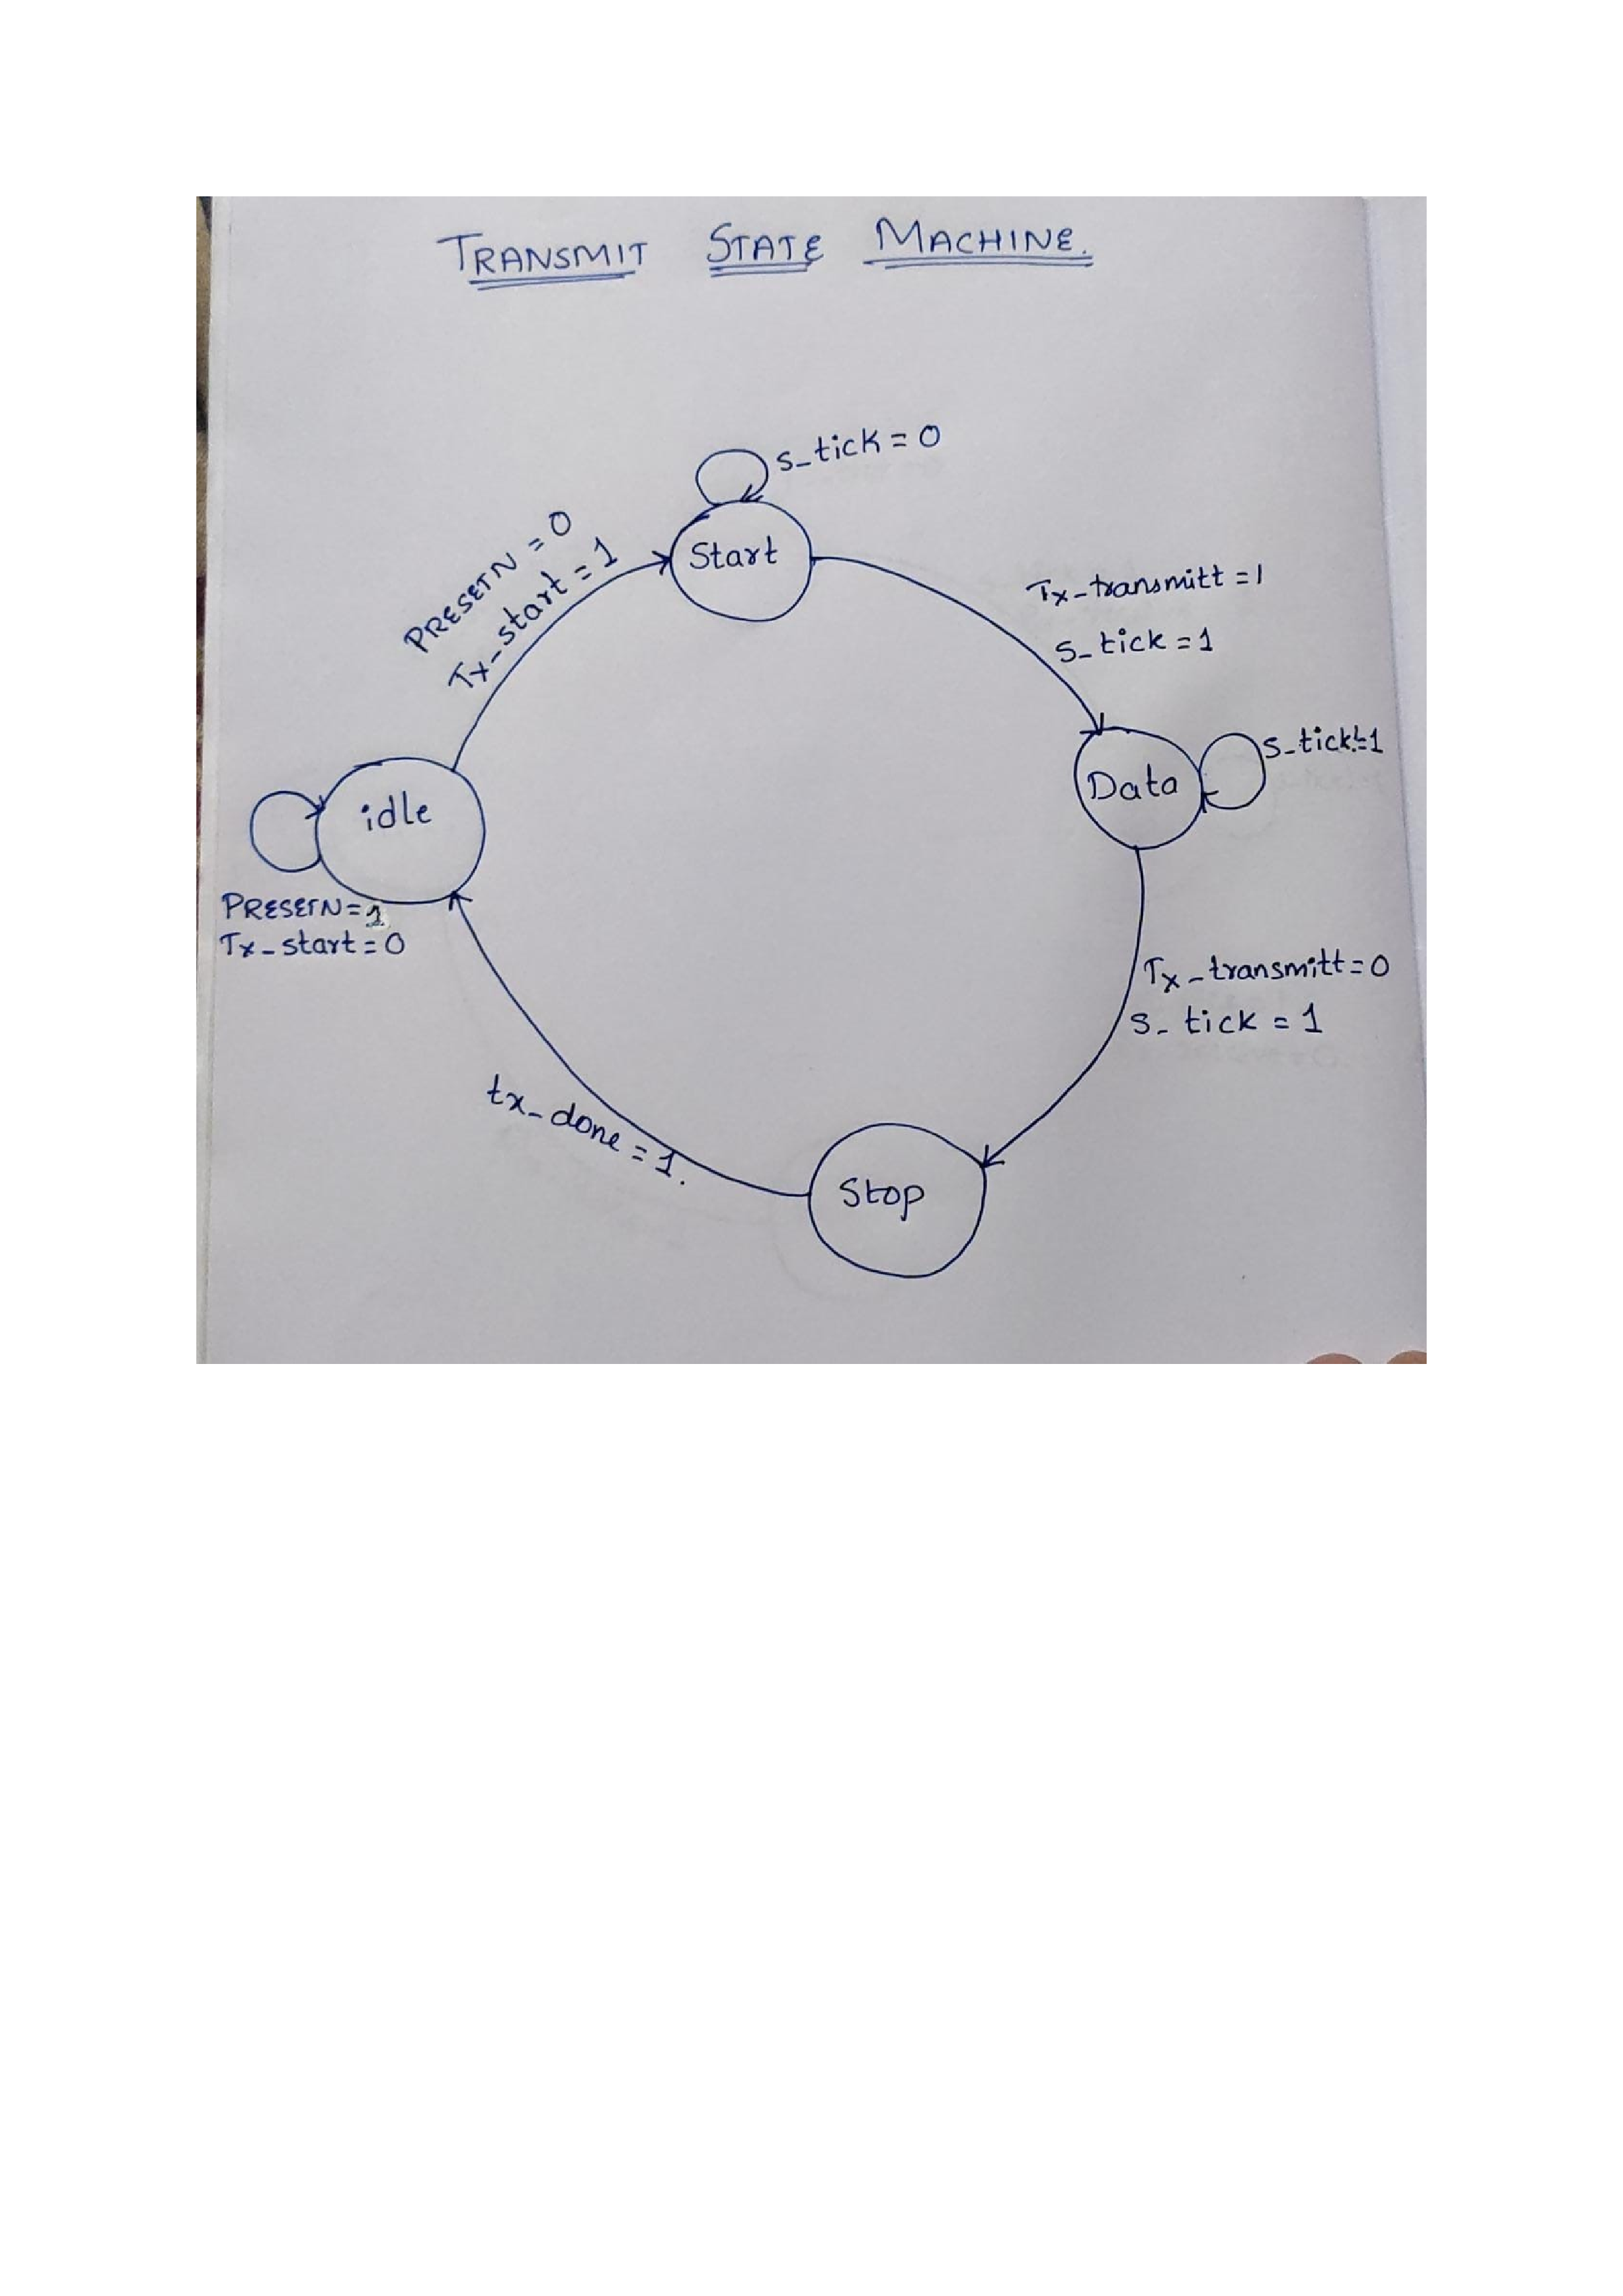 TRANSMIT STATE MACHINE.
S_tick = 0
PRESETN = 0
Tx_start = 1
Start
Tx_transmitt = 1
S_tick = 1
Data
S_tick!=1
idle
PRESETN = 1
Tx_start = 0
Tx_transmitt = 0
S_tick = 1
tx_done = 1.
Stop